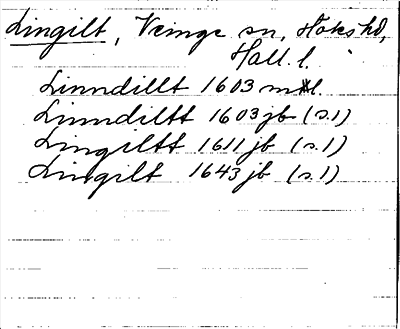 Lingilt, Veinge sn, Höks hd,
Hall. l.
Linndillt 1603 mtl.
Linndiltt 1603 jb (s.1)
Lingiltt 1611 jb (s.1)
Lingilt 1643 jb (s.1)